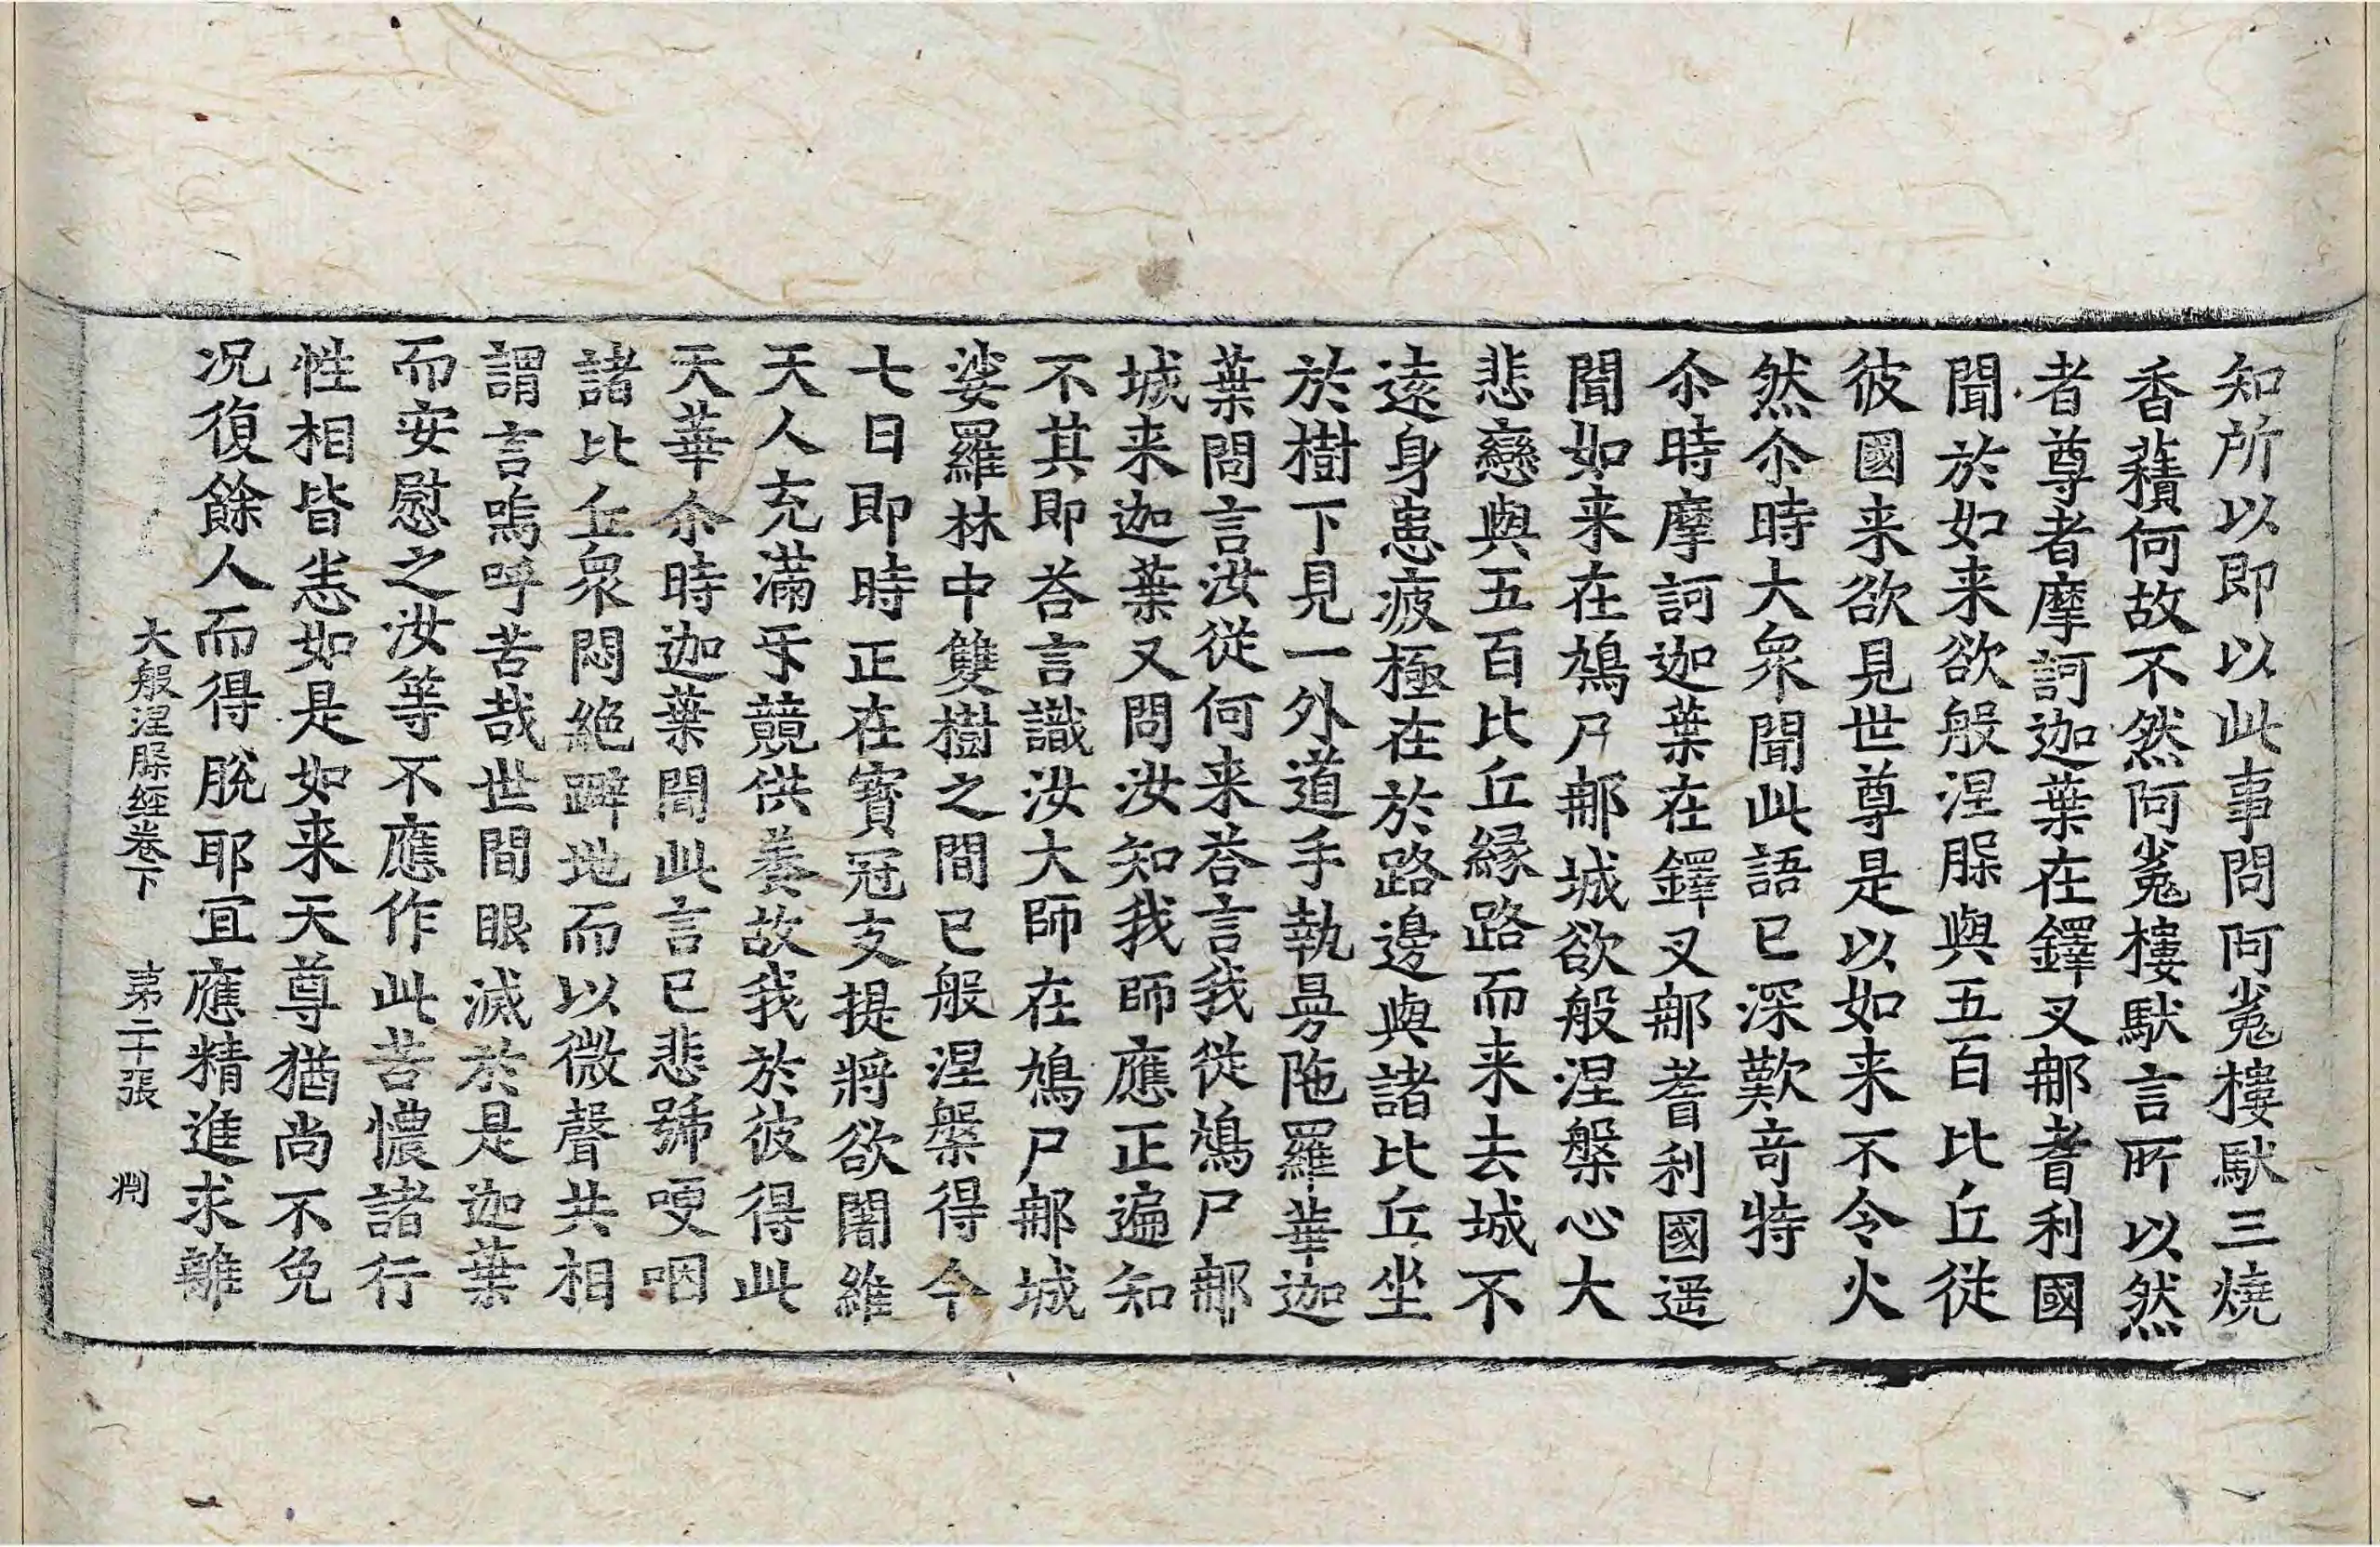 知所以即以此事問阿㝹樓馱三燒
香䕪何故不然阿㝹樓馱言所以然
者尊者摩訶迦葉在鐸叉那耆利國
聞於如来欲般涅脲與五百比丘從
彼國来欲見世尊是以如来不令火
然尒時大衆聞此語已深歎竒特
尒時摩訶迦葉在鐸叉那耆利國遥
聞如来在鳩尸那城欲般涅槃心大
悲戀與五百比丘緣路而来去城不
遠身患疲極在於路邊與諸比丘坐
於樹下見一外道手執曼陁羅華迦
葉問言汝從何来荅言我從鳩尸那
城来迦葉又問汝知我師應正遍知
不其即荅言識汝大師在鳩尸那城
娑羅林中雙樹之間已般涅槃得今
七日即時正在寳冠支提將欲闍維
天人充滿㸦競供養故我於彼得此
天華尒時迦葉聞此言已悲號哽咽
諸比丘衆悶絕躃地而以微聲共相
謂言嗚呼苦哉世間眼滅於是迦葉
而安慰之汝等不應作此苦惱諸行
性相皆悉如是如来天尊猶尚不免
况復餘人而得脫耶冝應精進求離
大般涅脲經卷下 第二十張